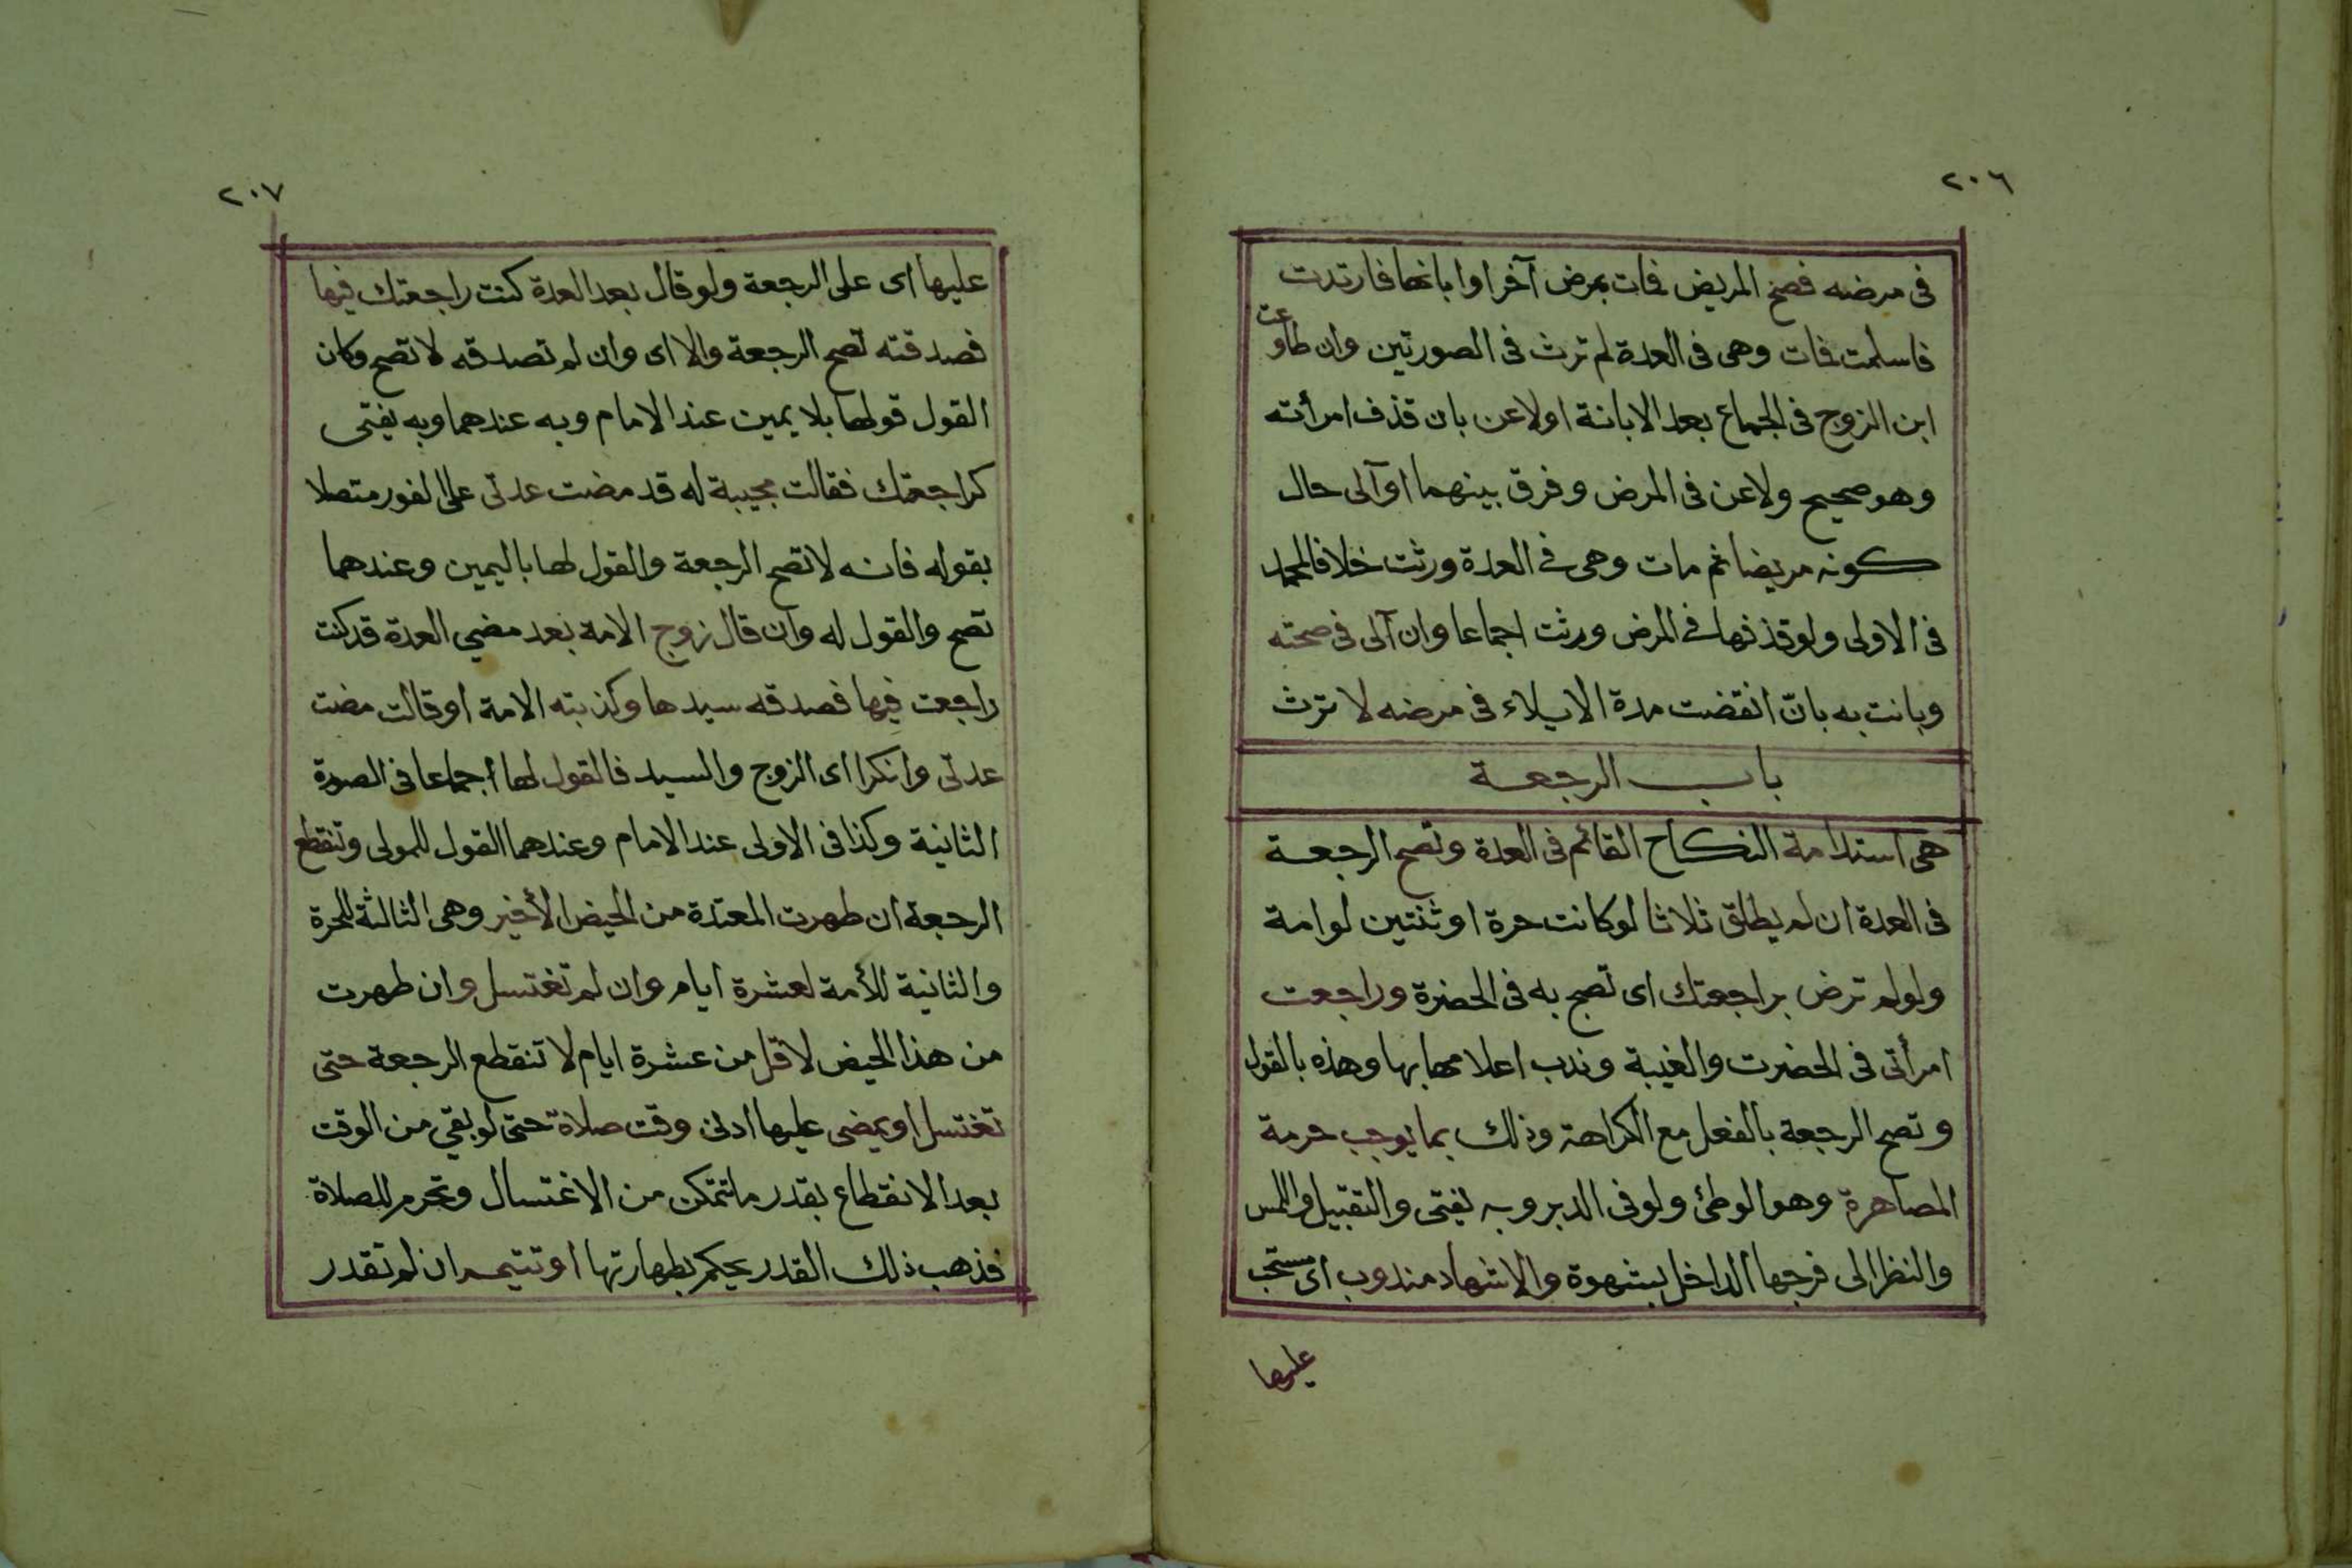 ٢٠٦
فى مرضه فصح المريض فمات بمرض آخر او ابانها فارتدت
فاسلمت فمات وهى فى العدة لم ترث فى الصورتين وان طاوعت
ابن الزوج فى الجماع بعد الابانة اولاعن بان قذف امرأته
وهو صحيح ولاعن فى المرض وفرق بينهما او آلى حال
كونه مريضا ثم مات وهى فى العدة ورثت خلافا لمحمد
فى الاولى ولو قذفها فى المرض ورثت اجماعا وان آلى فى صحته
وبانت به بانّ انقضت مدة الايلاء فى مرضه لا ترث
باب الرجعة
هى استدامة النكاح القائم فى العدة وتصح الرجعة
فى العدة ان لم يطلق ثلاثا لو كانت حرة او ثنتين لو امة
ولو لم ترض براجعتك اى تصح به فى الحضرة وراجعت
امرأتى فى الحضرت والغيبة وندب اعلامها بها وهذه بالقول
وتصح الرجعة بالفعل مع الكراهة وذلك بما يوجب حرمة
المصاهرة وهو الوطئ ولو فى الدبر وبه يفتى والتقبيل واللمس
والنظر الى فرجها الداخل بشهوة والاشهاد مندوب اى مستحب
عليها
٢٠٧
عليها اى على الرجعة ولو قال بعد العدة كنت راجعتك فيها
فصدقته تصح الرجعة والا اى وان لم تصدقه لا تصح وكان
القول قولها بلا يمين عند الامام وبه عندهما وبه يفتى
كراجعتك فقالت مجيبة له قد مضت عدتى على الفور متصلا
بقوله فانه لا تصح الرجعة والقول لها باليمين وعندهما
تصح والقول له وان قال زوج الامة بعد مضي العدة قد كنت
راجعت فيها فصدقه سيدها وكذبته الامة او قالت مضت
عدتى وانكرا اى الزوج والسيد فالقول لها اجماعا فى الصورة
الثانية وكذا فى الاولى عند الامام وعندهما القول للمولى وتنقطع
الرجعة ان طهرت المعتدة من الحيض الأخير وهى الثالثة للحرة
والثانية للأمة لعشرة ايام وان لم تغتسل وان طهرت
من هذا الحيض لاقل من عشرة ايام لا تنقطع الرجعة حتى
تغتسل او يمضى عليها ادنى وقت صلاة حتى لو بقي من الوقت
بعد الانقطاع بقدر ما تتمكن من الاغتسال وتحرم للصلاة
فذهب ذلك القدر يحكم بطهارتها او تتيمم ان لم تقدر